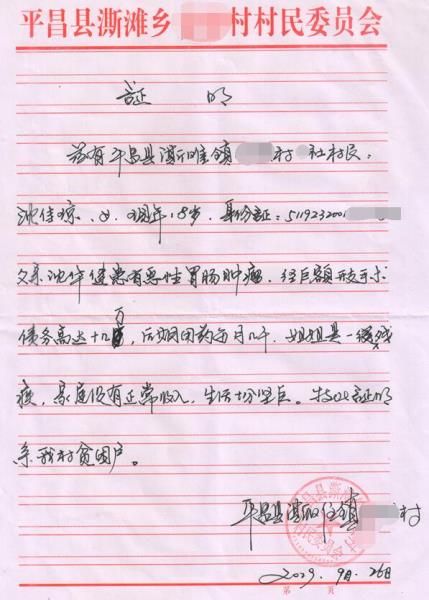 平昌县澌滩乡 村村民委员会
证 明
兹有平昌县澌滩镇 村 社村民,
沈佳琼,女,现年18岁,身份证:511923200
父亲沈华健患有恶性胃肠肿瘤,经巨额 手术
债务高达十几万,后期用药每月几千,姐姐是一级残
疾,家庭没有正常收入,生活十分坚巨。特此证明
系我村贫困户。
平昌县澌 镇 村
2029.9月.26日
第 页